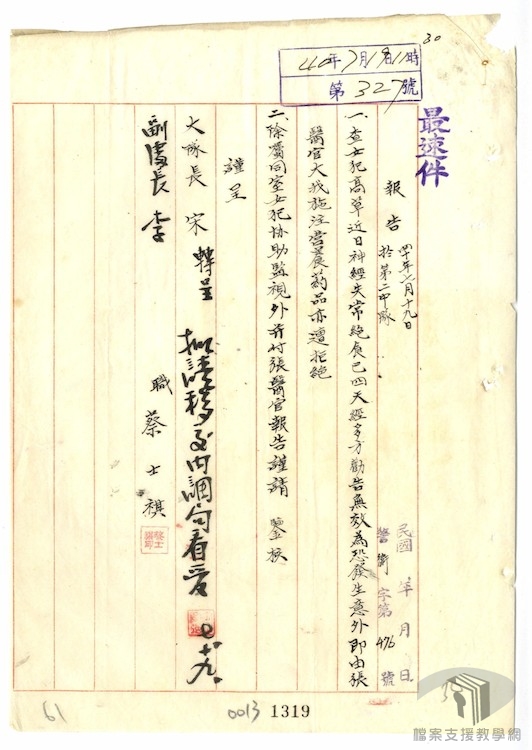 30
40年7月19日11時
第327號
最速件
報告 四十年七月十九日
於第二中隊
民國 年 月 日
警衛字第476號
一、查女犯高草近日神經失常絶食已四天經多方勸告無效為恐發生意外即由張
醫官大我施注營養葯品亦遭拒絶
二、除属同室女犯協助監視外并付張醫官報告謹請 鑒核
謹呈
大隊長 宋 轉呈
副處長 李
職 蔡士祺
七.十九.
61
0013 1319
檔案支援教學網